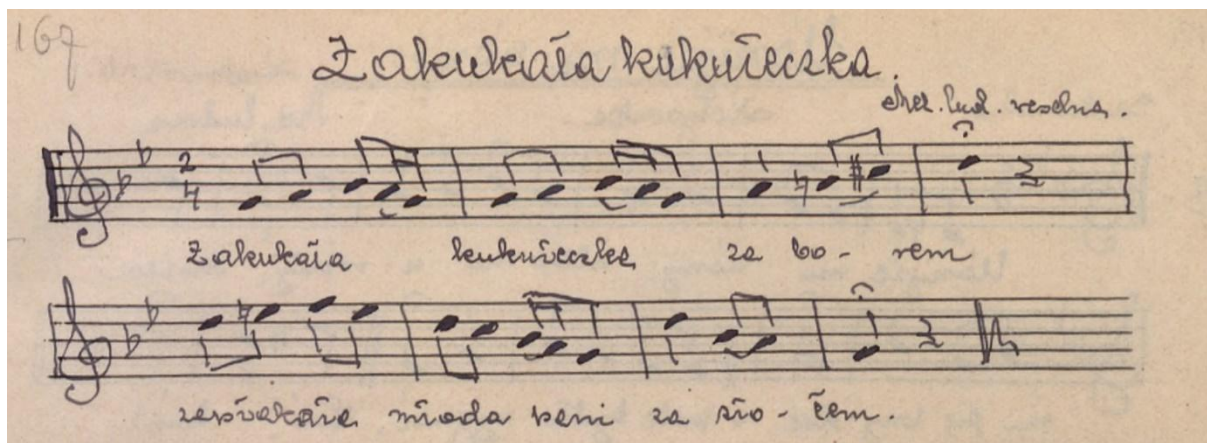 167
Zakukała kukułeczka.
Mel. lud. weselna.
2
4
Zakukała kukułeczka za bo - rem
zapłakała młoda pani za zło - tem.